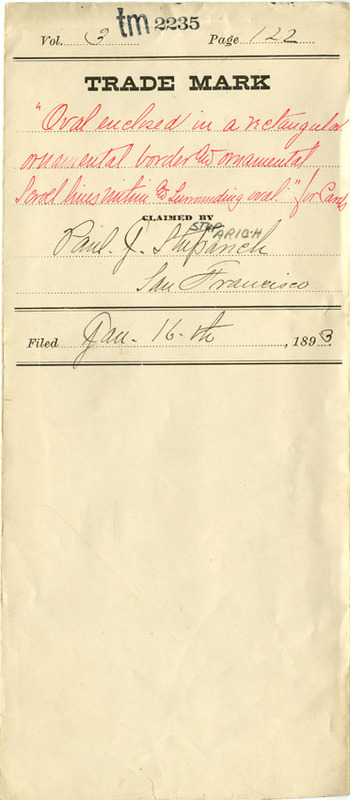 tm 2235
Vol. 3 Page 122
TRADE MARK
"Oval enclosed in a rectangular
ornamental border & ornamental
Scroll lines within & surrounding oval." for Cards
CLAIMED BY
STEPARICH
Paul. J. Stepanch
San Francisco
Filed Jan. 16.th, 1893